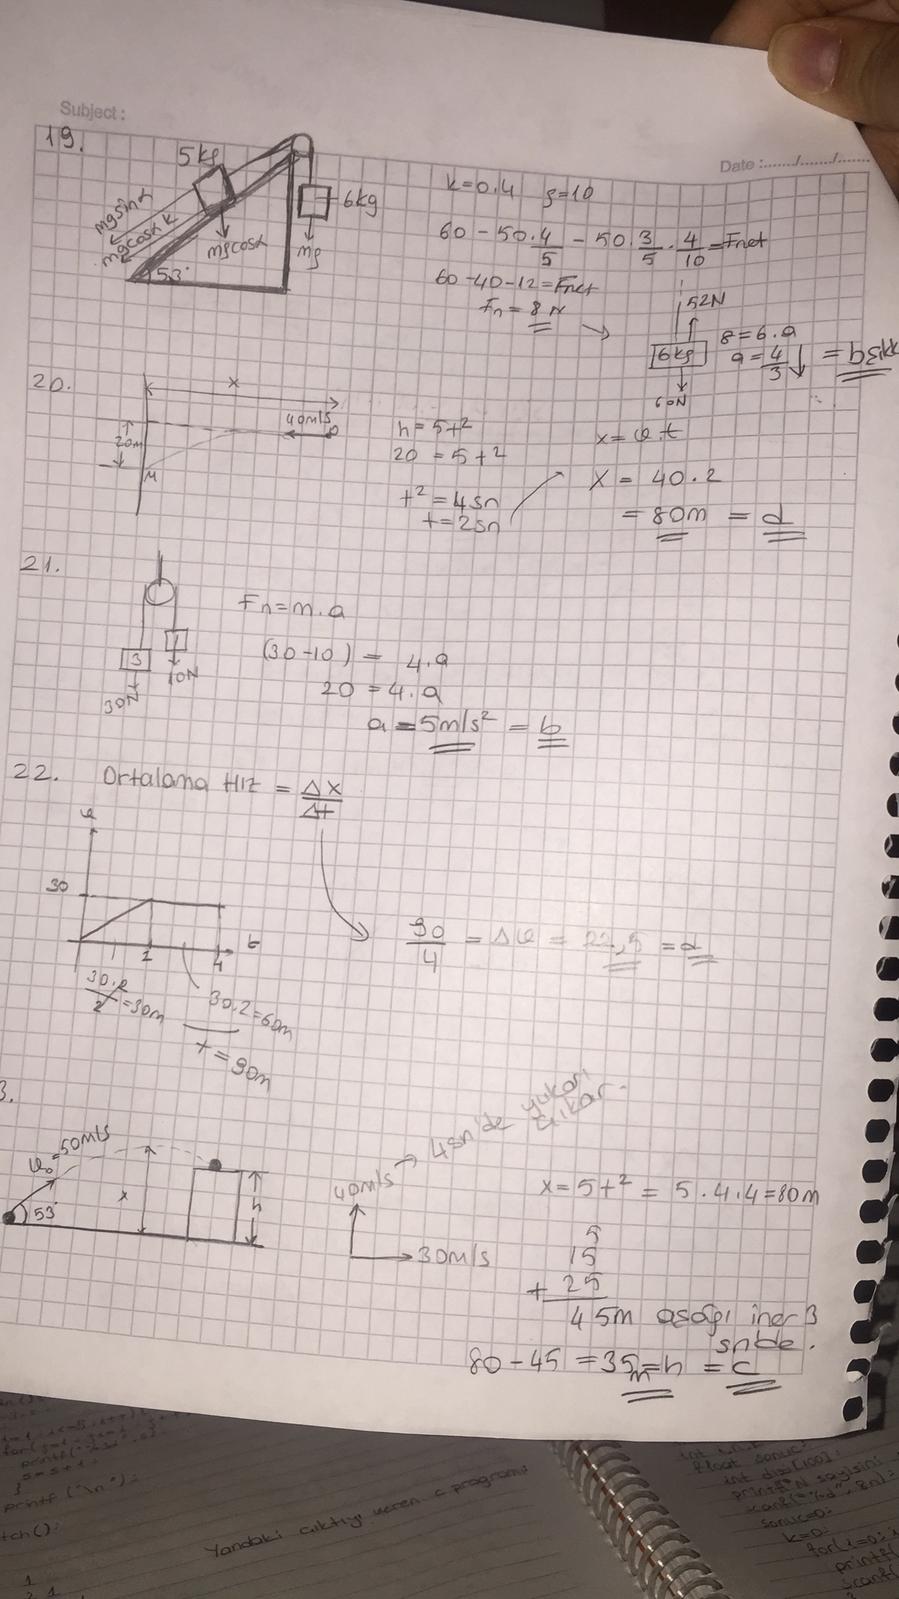 Subject :
Date :....../....../......
19.
5kg
6kg
mgsinα
mgcosα k
mgcosα
mg
53°
k=0.4 g=10
60 - 50.4/5 - 50.3/5 . 4/10 = Fnet
60-40-12=Fnet
Fn = 8 N
52N
6kg
60N
8=6.a
a=4/3
20.
x
40m/s
20m
M
h=5t²
20=5t²
t²=4sn
t=2sn
x=υ.t
X = 40.2
= 80m = d
21.
3
1
30N
10N
Fn=m.a
(30-10) = 4.a
20 = 4.a
a = 5m/s² = b
22. Ortalama HIZ = Δx/Δt
υ
30
2
4
t
30.2/2=30m
30.2=60m
+ = 90m
90/4 = Δυ = 22,5 = d
3.
υ₀=50m/s
53°
x
h
40m/s → 4sn'de yukarı
çıkar.
30m/s
x=5t² = 5.4.4=80m
5
15
+ 25
45m aşağı iner 3
sn'de.
80-45 = 35m=h = c
printf("\n");
Yandaki çıktıyı veren c programı
float sonuc
int dizi[100];
sonuc=0;
k=0;